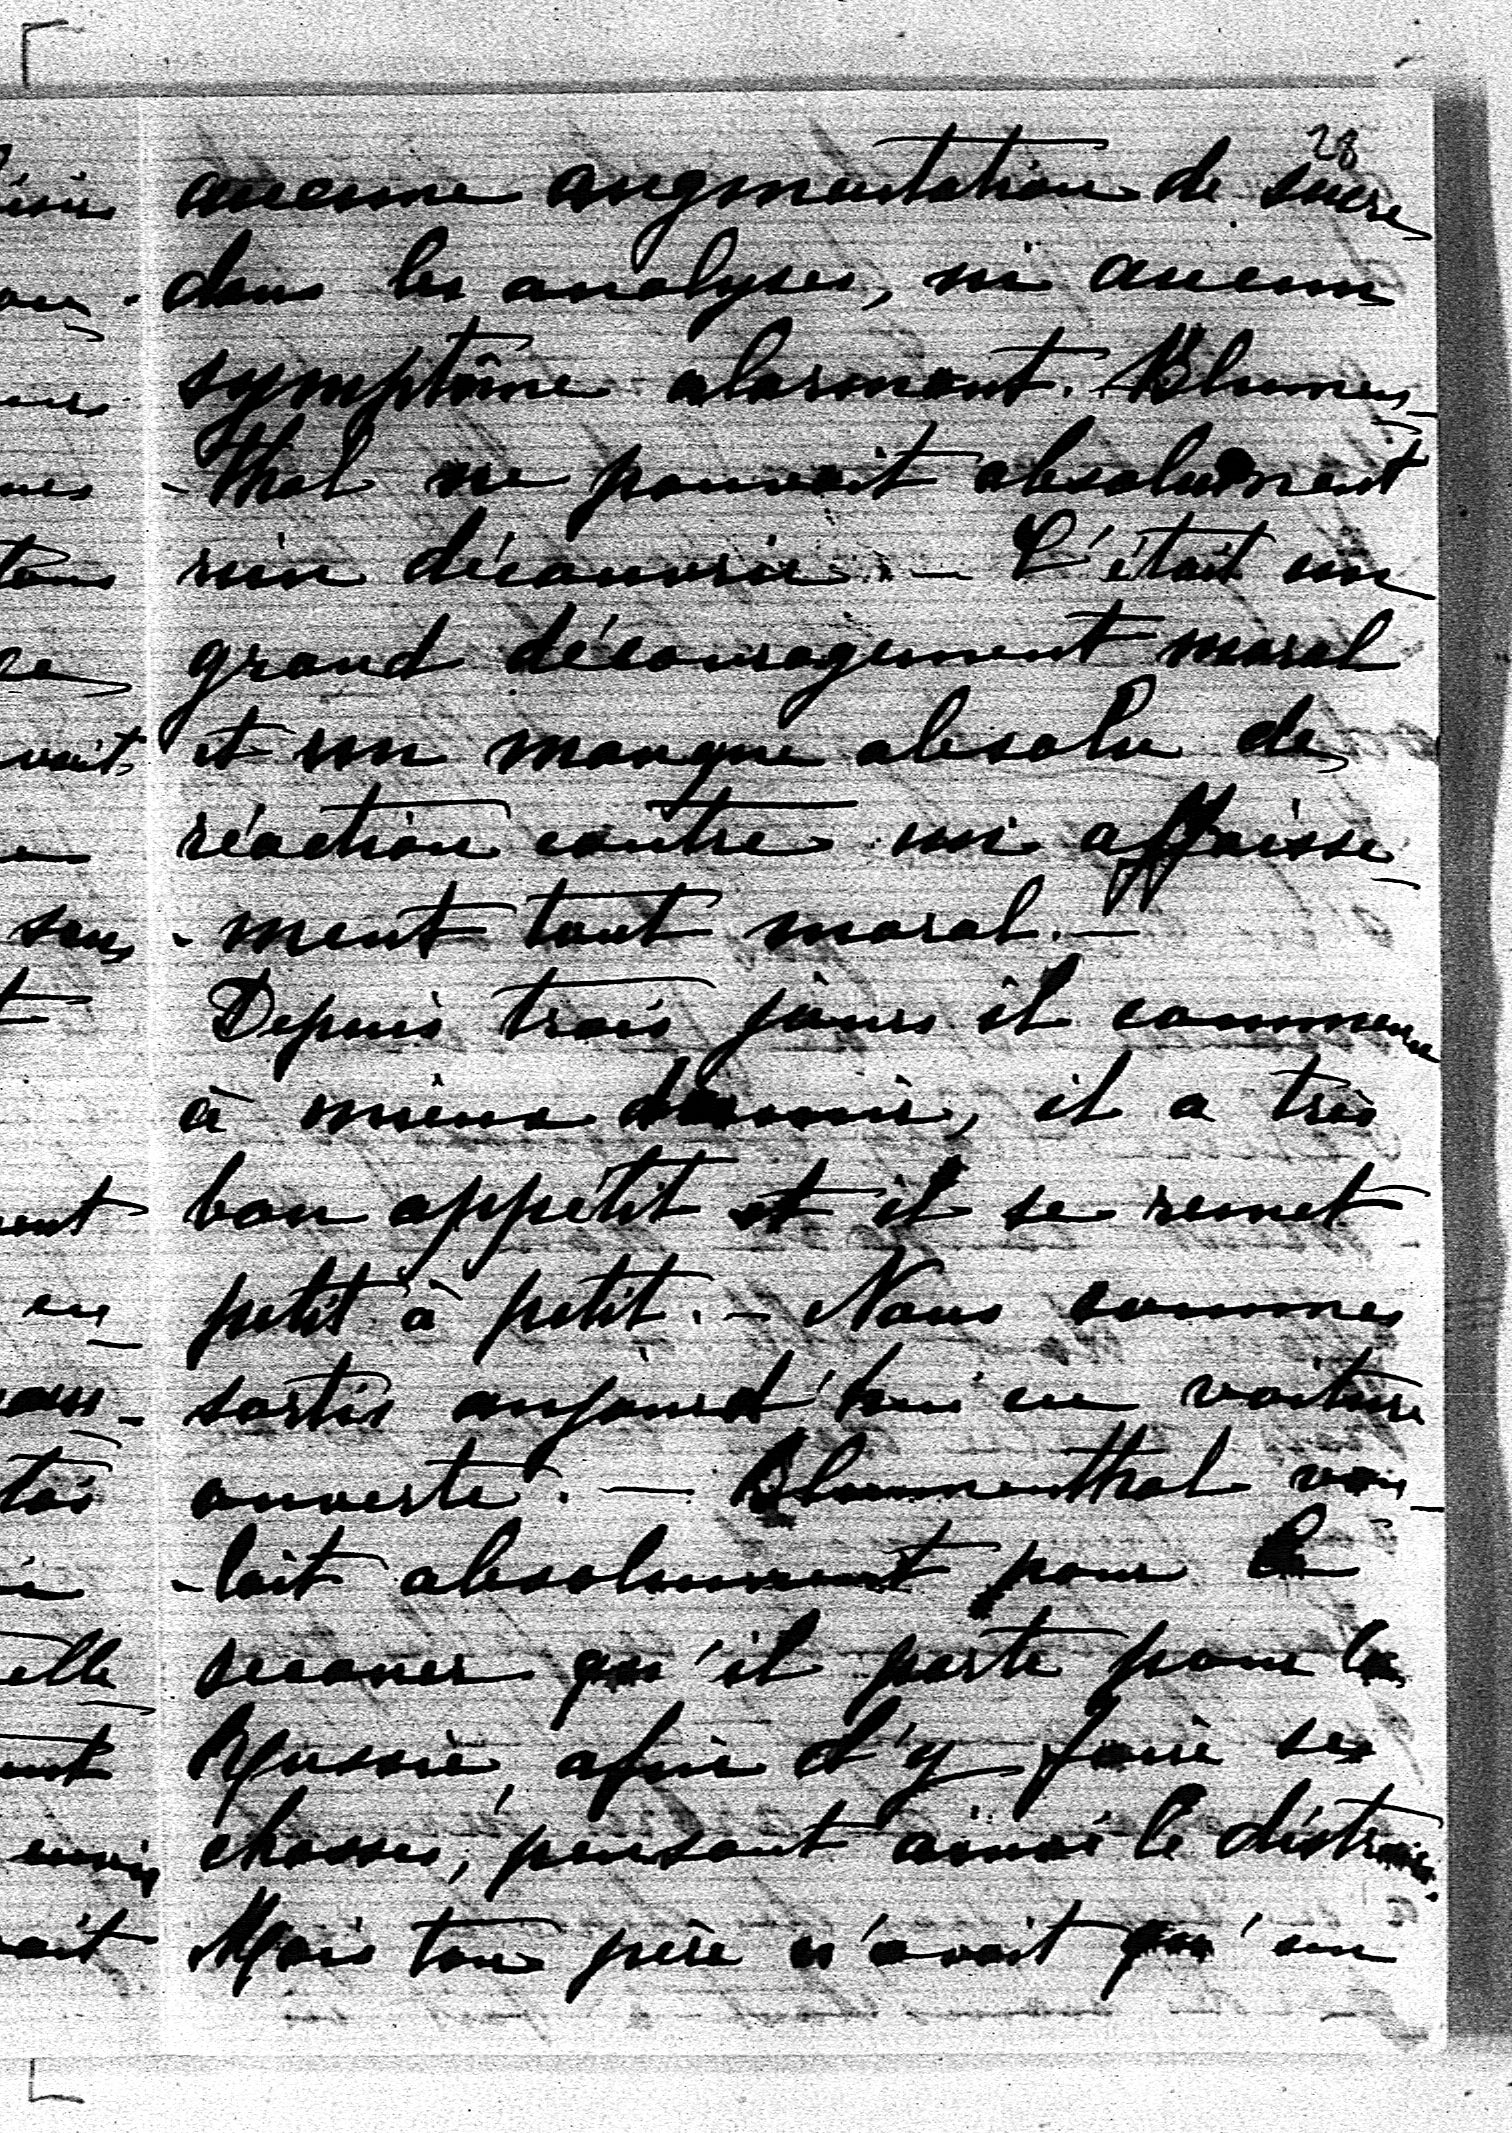 28
aucune augmentation de sucre
dans les analyses, ni aucun
symptôme alarmant. Blumen-
-thal ne pouvait absolument
rien découvrir. — C'était un
grand découragement moral
et un manque absolu de
réaction contre un affaisse-
-ment tout moral. —
Depuis trois jours il commence
à mieux dormir, il a très
bon appétit et il se remet
petit à petit. — Nous sommes
sortis aujourd'hui en voiture
ouverte. — Blumenthal vou-
-lait absolument pour le
secouer qu'il parte pour la
Russie, afin d'y faire ses
chasses, pensant ainsi le distraire.
Mais ton père n'avait qu'un